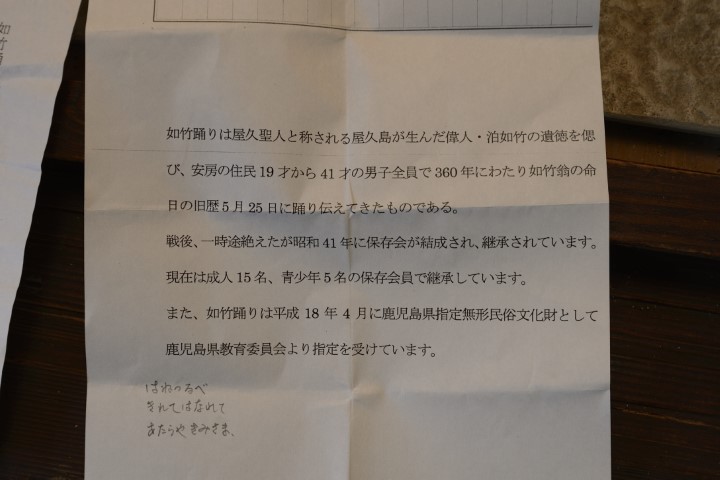 如竹踊りは屋久聖人と称される屋久島が生んだ偉人・泊如竹の遺徳を偲
び、安房の住民19才から41才の男子全員で360年にわたり如竹翁の命
日の旧歴5月25日に踊り伝えてきたものである。
戦後、一時途絶えたが昭和41年に保存会が結成され、継承されています。
現在は成人15名、青少年5名の保存会員で継承しています。
また、如竹踊りは平成18年4月に鹿児島県指定無形民俗文化財として
鹿児島県教育委員会より指定を受けています。
はねつるべ
きれてはなれて
またらや きみさま、
如竹